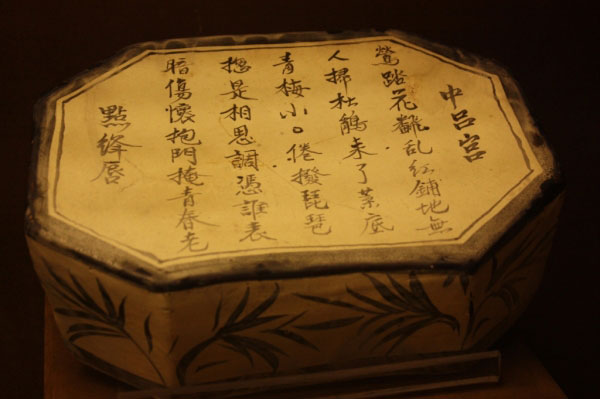 中吕宫
鶯踏花翻乱红鋪地無
人掃杜鵑来了葉底
青梅小口倦撥琵琶
揔是相思調憑誰表
暗傷懷抱門掩青春老
點絳唇